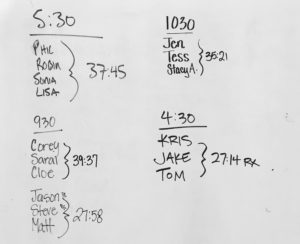 5:30
PHIL
ROBIN
SONIA
LISA
37:45
1030
Jen
Tess
Stacy A.
35:21
930
Corey
Sarah
Cloe
39:37
Jason
Steve
Matt
27:58
4:30
KRIS
JAKE
TOM
27:14 RX